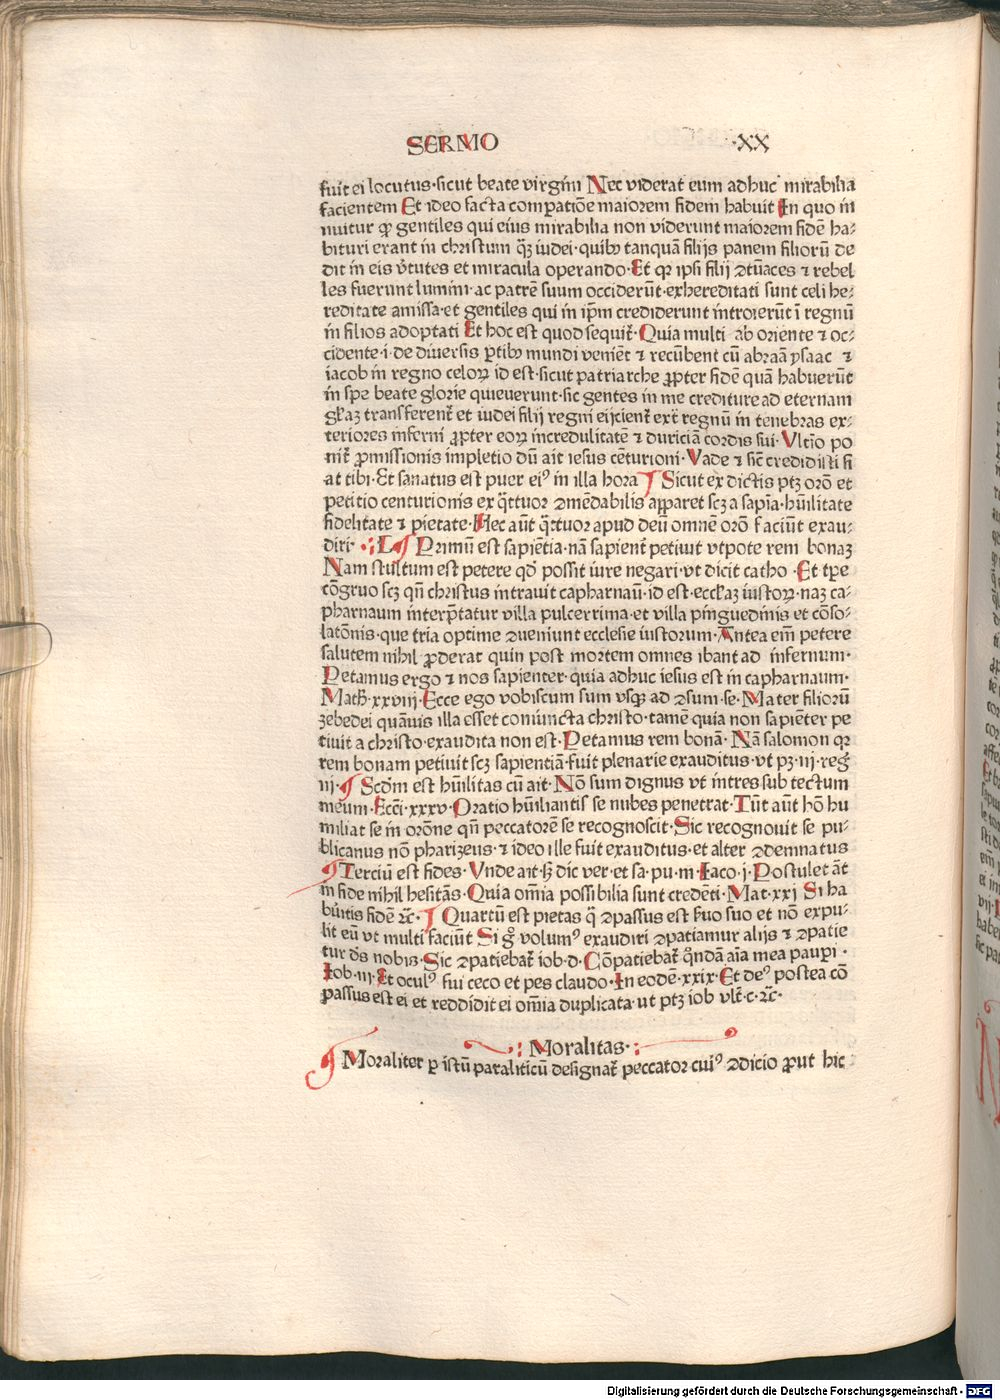 SERMO ·XX
fuit ei locutus·sicut beate virgīni Nec viderat eum adhuc mirabilia
facientem Et ideo facta compatiōe maiorem fidem habuit In quo in
nuitur ꝙ gentiles qui eius mirabilia non viderunt maiorem fidē ha⸗
bituri erant in christum qꝫ iudei·quibꝰ tanquā filijs panem filiorū de
dit in eis v̄tutes et miracula operando·Et qꝛ ipsi filij ↄtūaces ⁊ rebel
les fuerunt lumini·ac patrē suum occiderūt·exhereditati sunt celi he⸗
reditate amissa·et gentiles qui in ip̄m crediderunt introierūt ī regnū
in filios adoptati Et hoc est quod sequit᷑·Quia multi ab oriente ⁊ oc⸗
cidente·i·de diuersis ꝑtibꝰ mundi veniēt ⁊ recūbent cū abraā ysaac ⁊
iacob in regno celoꝝ id est·sicut patriarche ꝓpter fidē quā habuerūt
in spe beate glorie quieuerunt·sic gentes in me crediture ad eternam
gl̄iaꝫ transferent᷑ et iudei filij regni eijcient᷑ ext᷑ regnū in tenebras ex⸗
teriores inferni ꝓpter eoꝝ incredulitatē ⁊ duriciā cordis sui·Vltīo po
nit᷑ ꝓmissionis impletio dū ait iesus cēturioni·Vade ⁊ sic̄ credidisti fi
at tibi·Et sanatus est puer eiꝰ in illa hora ¶ Sicut ex dictis ptꝫ orō et
petitio centurionis ex q̄ttuor ↄmēdabilis apparet scꝫ a sapīa·hūilitate
fidelitate ⁊ pietate·Hec aūt q̄ttuor apud deū omnē orō faciūt exau⸗
diri· ¶ Primū est sapiētia·nā sapient᷑ petiuit vtpote rem bonaꝫ
Nam stultum est petere qd̄ possit iure negari·vt dicit catho·Et tꝑe
cōgruo scꝫ qn̄ christus intrauit capharnaū·id est·eccl̄iaꝫ iustoꝝ·naꝫ ca⸗
pharnaum interp̄tatur villa pulcerrima·et villa pinguedinis et cōso⸗
latōnis·que tria optime ↄueniunt ecclesie iustorum·Antea em̄ petere
salutem nihil ꝓderat quin post mortem omnes ibant ad infernum·
Petamus ergo ⁊ nos sapienter·quia adhuc iesus est in capharnaum·
Math̄·xxviij·Ecce ego vobiscum sum vsqꝫ ad ↄsum·se·Mater filiorū
zebedei quāuis illa esset coniuncta christo·tamē quia non sapiēter pe
tiuit a christo·exaudita non est·Petamus rem bonā·Nā salomon qꝛ
rem bonam petiuit scꝫ sapientiā·fuit plenarie exauditus·vt pꝫ·iij·reg
iij·¶ Scd̄m est hūilitas cū ait·Nō sum dignus vt intres sub tectum
meum·Ecci̅·xxxv·Oratio hūiliantis se nubes penetrat·Tūt aūt hō hu
miliat se in orōne qn̄ peccatorē se recognoscit·Sic recognouit se pu⸗
blicanus nō pharizeus·⁊ ideo ille fuit exauditus·et alter ↄdemnatus
¶ Terciū est fides·Vnde ait·ꝫ dic ver·et sa·pu·m·Iaco·j·Postulet āt
in fide nihil hesitās·Quia omīa possibilia sunt credēti·Mat·xxj Si ha
būitis fidē ⁊c̄·¶ Quartū est pietas q̄ ↄpassus est ẜuo suo et nō expu⸗
lit eū vt multi faciūt Si gͦ volumꝰ exaudiri ↄpatiamur alijs ⁊ ↄpatie
tur dn̄s nobis·Sic ↄpatiebat᷑ iob·d·Cōpatiebat᷑ qn̄dā aīa mea paupi·
Iob·iij·Et oculꝰ fui ceco et pes claudo·In eodē·xxix·Et deꝰ postea cō
passus est ei et reddidit ei omīa duplicata·ut ptꝫ iob vlt̄·c·⁊c̄·
Moralitas·
¶ Moraliter ꝑ istū paraliticū designat᷑ peccator cuiꝰ ↄdicio ꝓut hic
Digitalisierung gefördert durch die Deutsche Forschungsgemeinschaft - DFG